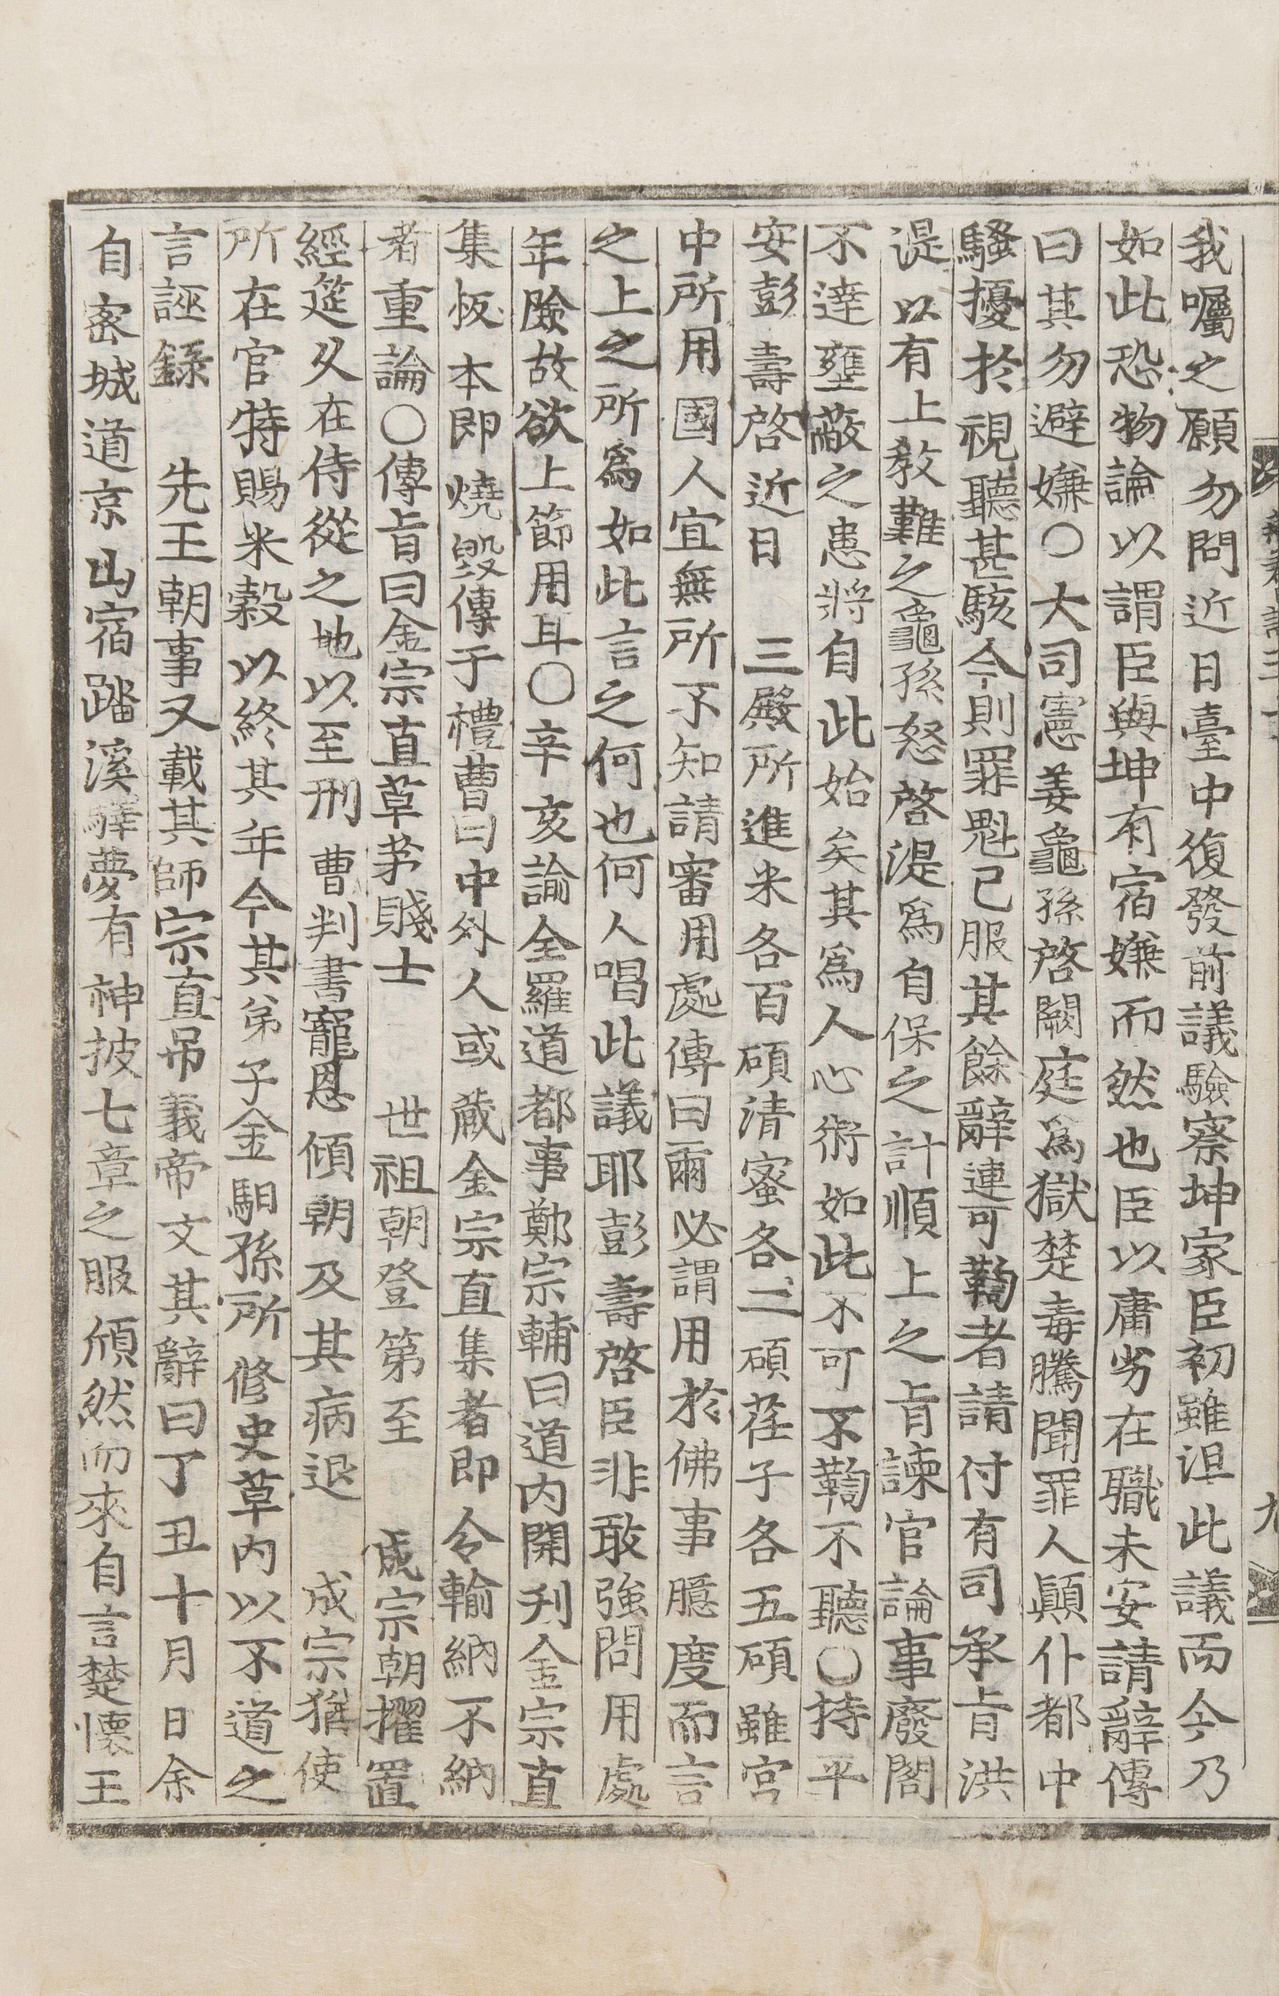 我囑之願勿問近日臺中復發前議驗察坤家臣初雖沮此議而今乃
如此恐物論以謂臣與坤有宿嫌而然也臣以庸劣在職未安請辭傳
曰其勿避嫌○大司憲姜龜孫啓闕庭爲獄楚毒騰聞罪人顚仆都中
騷擾於視聽甚駭今則罪魁已服其餘辭連可鞫者請付有司承旨洪
湜以有上敎難之龜孫怒啓湜爲自保之計順上之旨諫官論事廢閣
不達壅蔽之患將自此始矣其爲人心術如此不可不鞫不聽○持平
安彭壽啓近日　三殿所進米各百碩淸蜜各二碩荏子各五碩雖宮
中所用國人宜無所不知請審用處傳曰爾必謂用於佛事臆度而言
之上之所爲如此言之何也何人唱此議耶彭壽啓臣非敢強問用處
年險故欲上節用耳○辛亥諭全羅道都事鄭宗輔曰道內開刋金宗直
集板本即燒毁傳于禮曹曰中外人或藏金宗直集者即令輸納不納
者重論○傳旨曰金宗直草茅賤士　世祖朝登第至　成宗朝擢置
經筵久在侍從之地以至刑曹判書寵恩傾朝及其病退　成宗猶使
所在官特賜米穀以終其年今其弟子金馹孫所修史草內以不道之
言誣錄　先王朝事又載其師宗直弔義帝文其辭曰丁丑十月日余
自密城道京山宿踏溪驛夢有神披七章之服頎然而來自言楚懷王
九